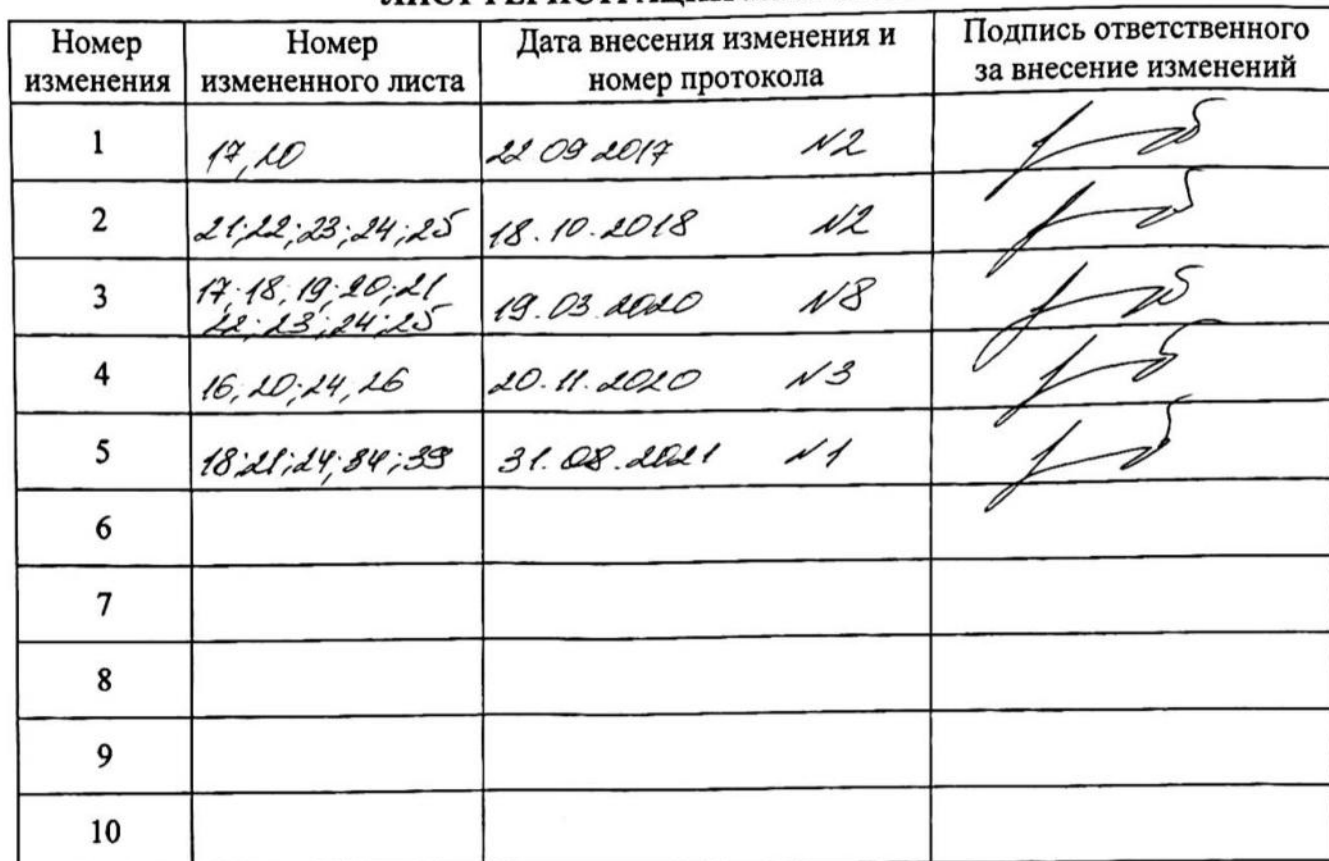 ЛИСТ РЕГИСТРАЦИИ
Номер изменения
Номер измененного листа
Дата внесения изменения и номер протокола
Подпись ответственного за внесение изменений
1
17, 20
22 09 2017 N2
2
21; 22; 23; 24; 25
18.10.2018 N2
3
17; 18; 19; 20; 21
22; 23; 24; 25
19.03.2020 N8
4
16; 20; 24, 26
20.11.2020 N3
5
18; 21; 24; 34; 39
31.08.2021 N1
6
7
8
9
10